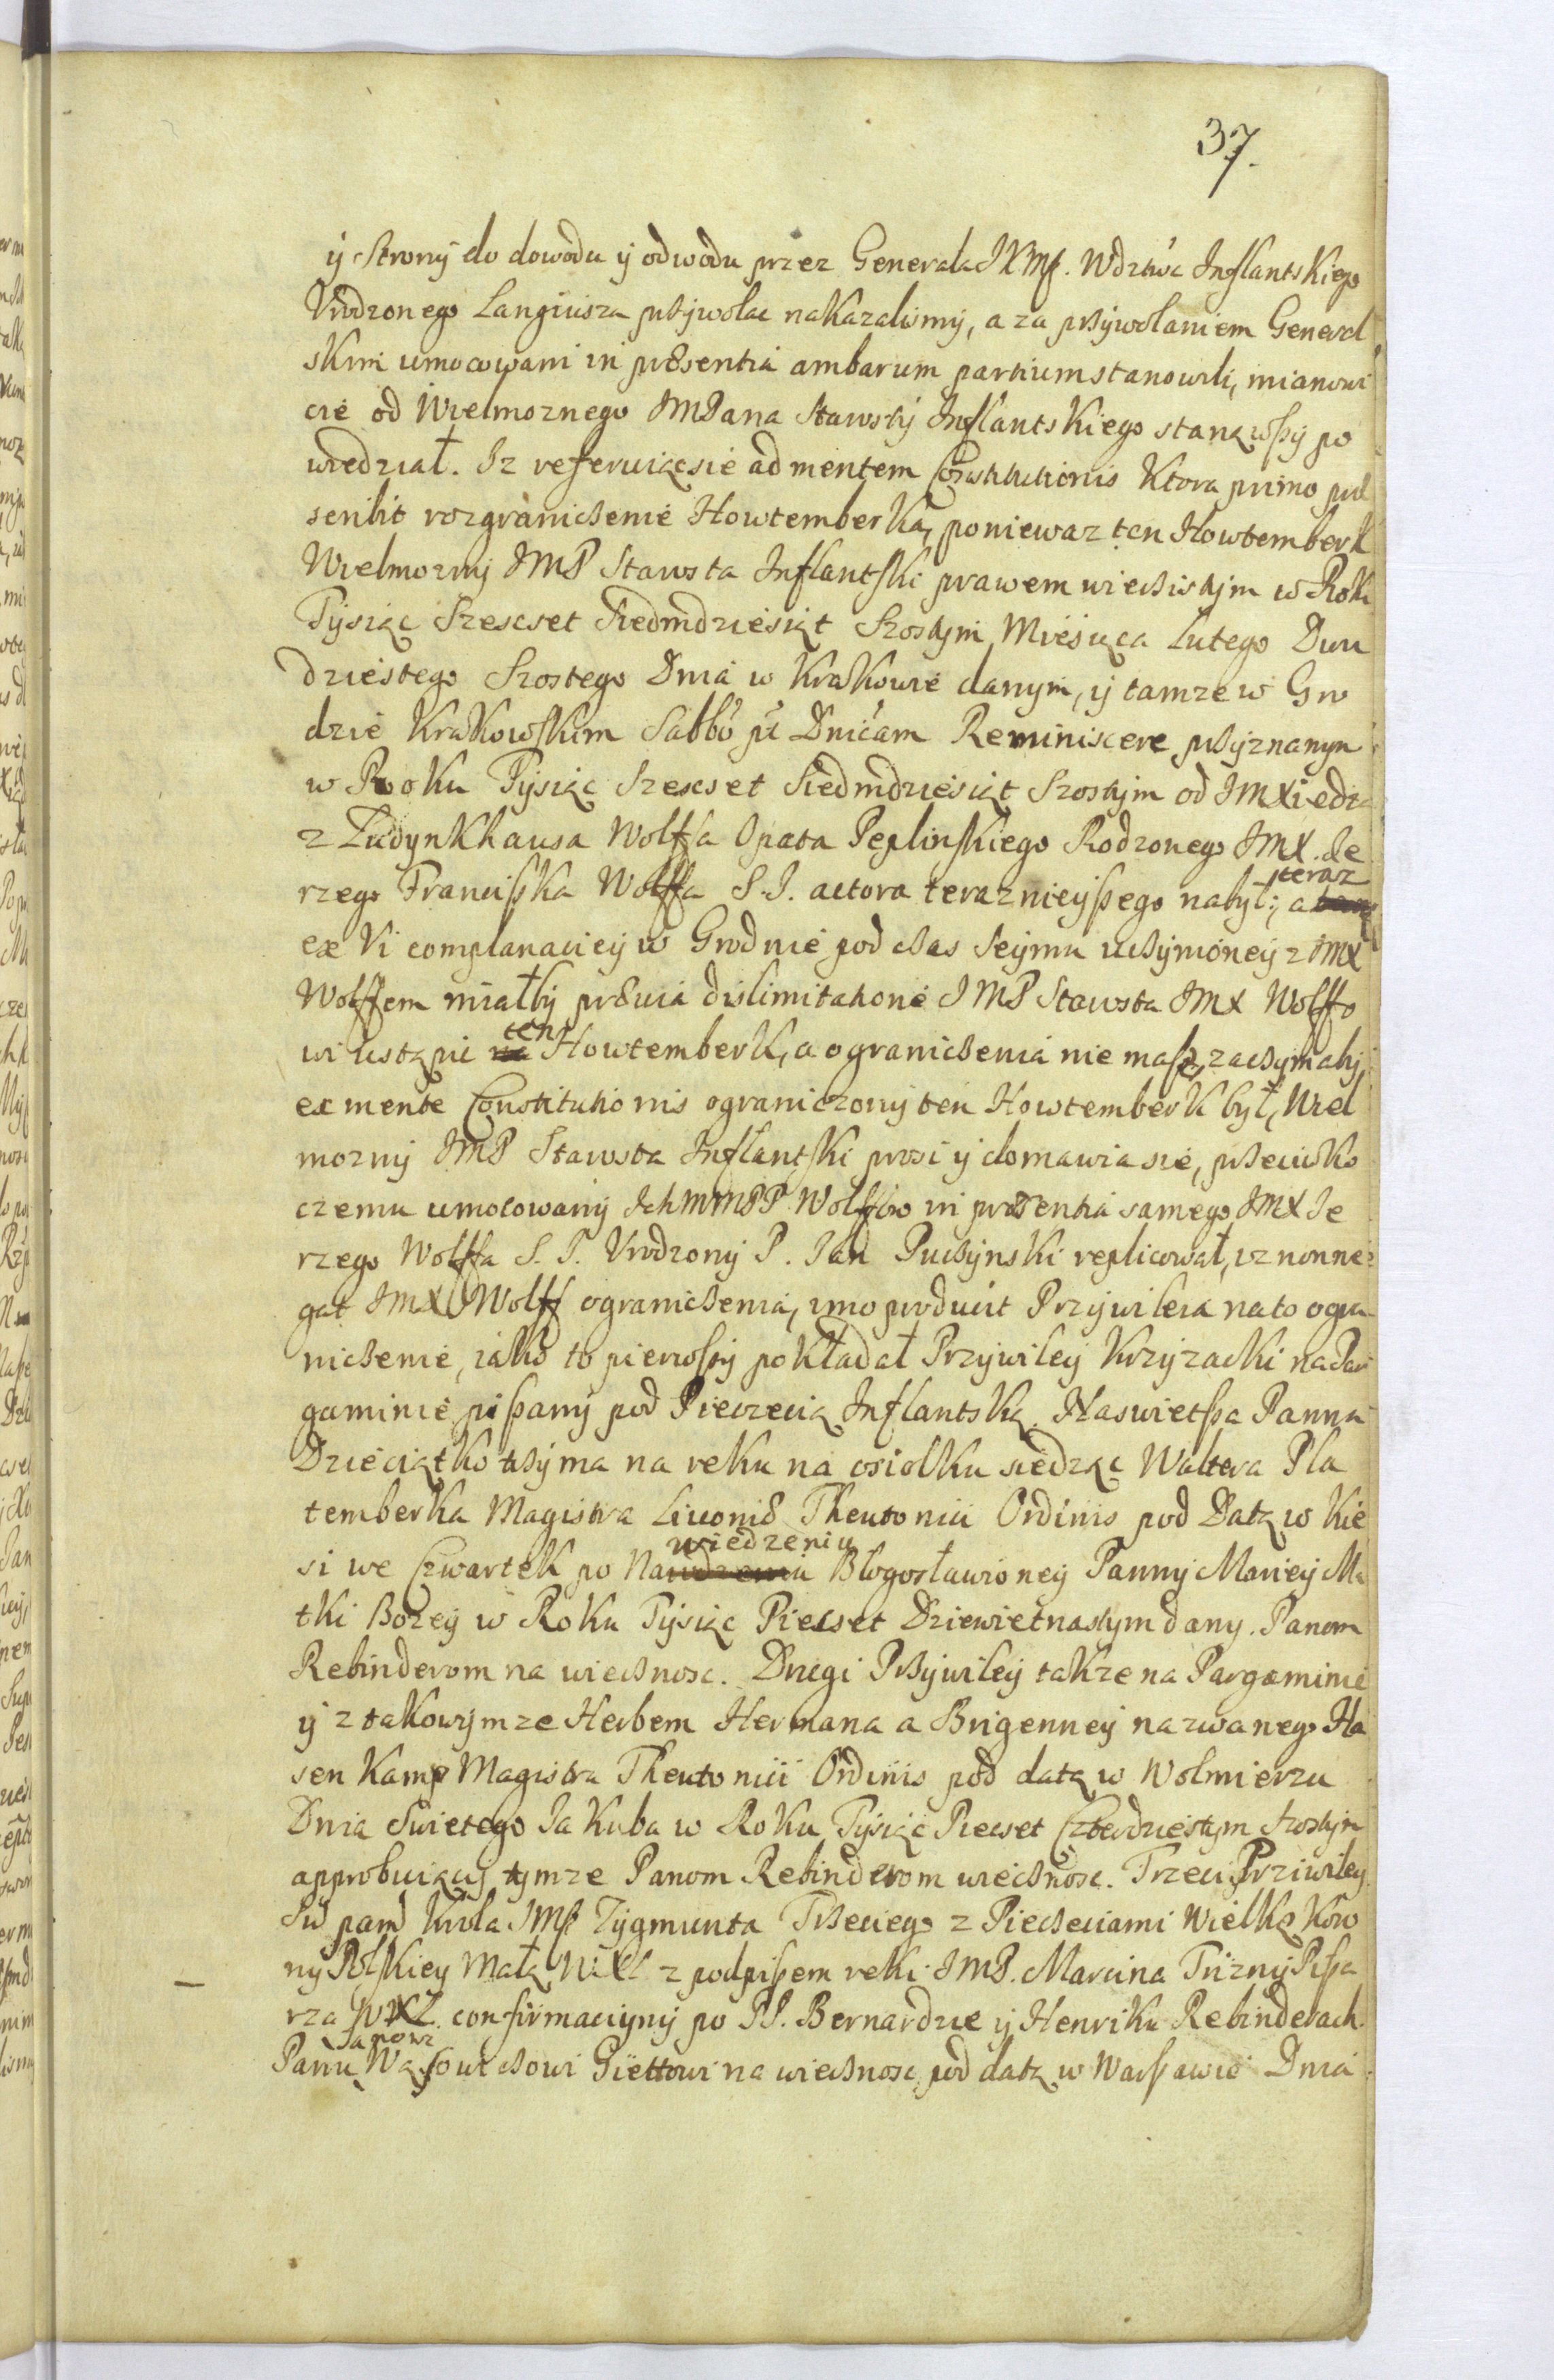 37.
ÿ strony do dowodu ÿ odwodu przez Generala JKMſ. Wdztwa Inflantskiego
Vrodzonego Langiusza przÿwolac nakazalismÿ, a za przÿwolaniem General
skim umocowani in præsentia ambarum partium stanowili, mianowi
cie od Wielmoznego JMPana Starostÿ Inflantskiego stanąwſzÿ po
wiedział. Iz referuiącsie ad mentem Constitutionis Ktora primo præ
scribit rozgraniczenie Howtemberka, poniewaz ten Howtemberk
Wielmoznÿ JMP Starosta Inflantſki prawem wieczistÿm w Roku
Tÿsiąc Szescset Siedmdziesiąt Szostÿm Miesiąca Lutego Dwu
dziestego Szostego Dnia w Krakowie danÿm, ÿ tamze w Gro
dzie Krakowſkim Sabbo pt Dnicam Reminiscere przÿznanÿm
w Roku Tÿsiąc Szescset Siedmdziesiąt Szostÿm od JMXiedza
z Ludÿnkhausa Wolffa Opata Peplinſkiego Rodzonego JMX. Je
rzego Franciſzka Wolffa S.J. actora teraznieÿſzego nabÿł; a teraz
ex vi complanacieÿ w Grodnie pod czas Seÿmu uczÿnioneÿ z JMX
Wolffem miałbÿ prævia dislimitatione JMP Starosta JMX Wolffo
wi ustąpic ten Howtemberk, a ograniczenia nie maſz, zaczÿm abÿ
ex mente Constitutionis ograniczonÿ ten Howtemberk był, Wiel
moznÿ JMP Starosta Inflantſki prosi ÿ domawia sie, przeciwko
czemu umocowanÿ IchMMPP. Wolffow in præsentia samego JMX Je
rzego Wolffa S. J. Vrodzonÿ P. Jan Puczÿnski replicował, iz non ne
gat JMX Wolff ograniczenia, imo producit Przÿwileia na to ogra
niczenie, iako to pierwſzÿ pokładał Przÿwileÿ Krzÿzacki na Par
gaminie piſzanÿ pod Pieczecią Inflantską. Naswietſza Panna
Dzieciątko trzÿma na reku na osiolku siedząc Waltera Pla
temberka Magistra Livoniæ Theutonici Ordinis pod Datą w Kie
si we Czwartek po Nawiedzeniu Błogosławioneÿ Pannÿ Marieÿ Ma
tki Bożeÿ w Roku Tÿsiąc Piecset Dziewietnastÿm danÿ. Panom
Rebinderom na wiecznosc. Drugi Przÿwileÿ takze na Pargaminie
ÿ z takowÿmze Herbem Hermana a Brigenneÿ nazwanego Ha
senkamp Magistra Theutonici Ordinis pod datą w Wolmierzu
Dnia Swietego Jakuba w Roku Tÿsiąc Piecset Czterdziestÿm Szostÿm
approbuiącÿ tÿmze Panom Rebinderom wiecznosc. Trzeci Prziwileÿ
Sw pam Krola JMſci Zÿgmunta Trzeciego z Pieczeciami Wielką Koro
nÿ Polſkieÿ Małą WXL z podpiſzem reki JMP. Marcina Triznÿ Piſza
rza WXL. confirmacÿinÿ po PP. Bernardzie ÿ Henriku Rebinderach
Panu Janowi Wąsowiczowi Giettowi na wiecznosc pod datą w Warſzawie Dnia